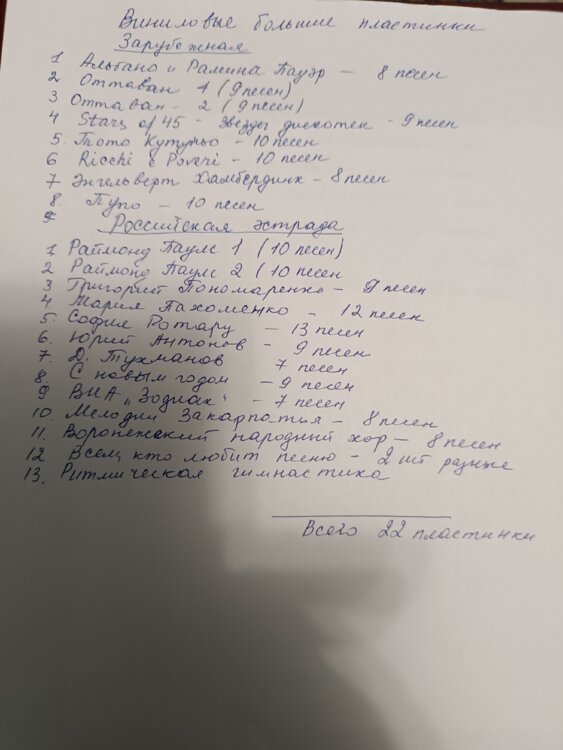 Виниловые большие пластинки
Зарубежная
1 Альбано и Рамина Пауэр - 8 песен
2 Оттаван 1 (9 песен)
3 Оттаван - 2 (9 песен)
4 Stars of 45 - Звезды дискотек - 9 песен
5. Тото Кутуньо - 10 песен
6 Ricchi e Poveri - 10 песен
7 Энгельверт Хамбердинк - 8 песен
8 Пупо - 10 песен
9 Российская эстрада
1 Раймонд Паулс 1 (10 песен)
2 Раймонд Паулс 2 (10 песен
3 Григорий Пономаренко - 9 песен
4. Мария Пахоменко - 12 песен
5. София Ротару - 13 песен
6. Юрий Антонов - 9 песен
7. Д. Тухманов 7 песен
8. С новым годом - 9 песен
9 ВИА „Зодиак" - 7 песен
10. Мелодии Закарпатья - 8 песен
11. Воронежский народний хор - 8 песен
12 Всем, кто любит песню - 2 шт разные
13. Ритмическая гимнастика
Всего 22 пластинки